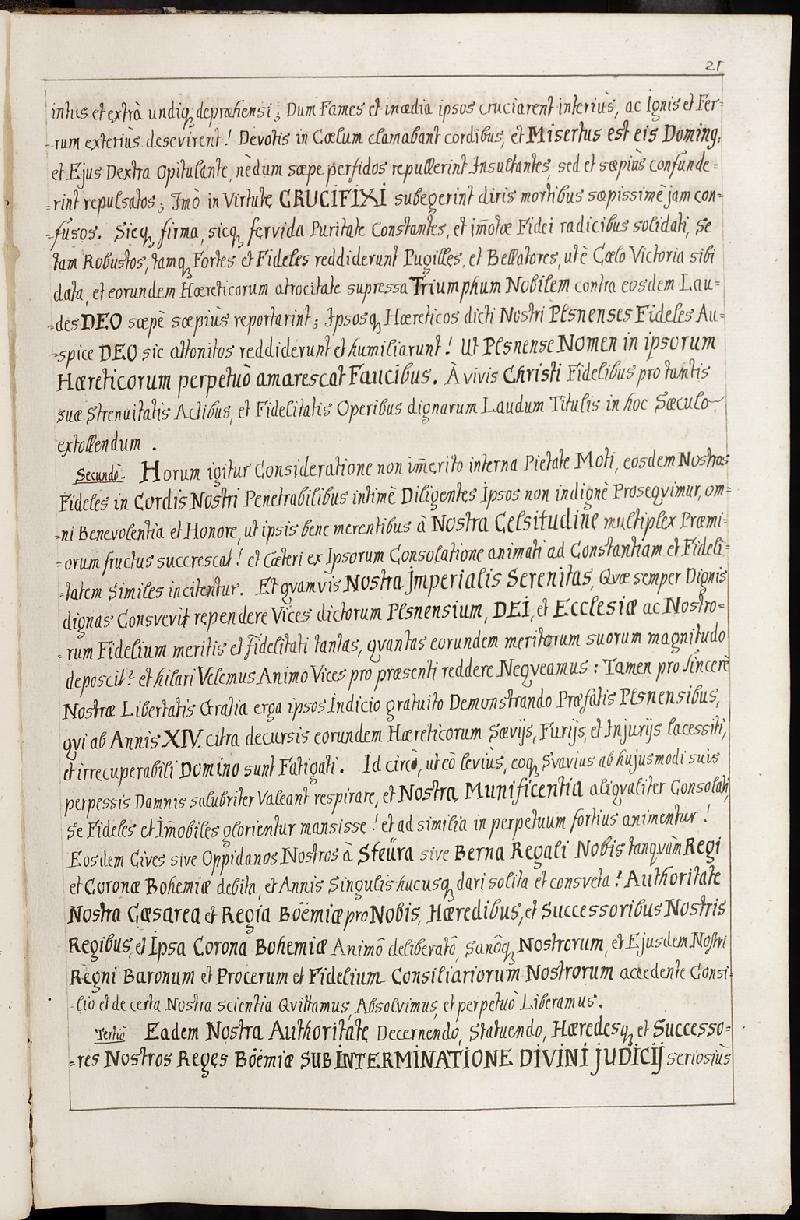 21
intus et extrà undiq; deprehensi; Dum Fames et inædia ipsos cruciarent interiùs, ac Ignis et Fer-
-rum exteriùs desævirent! Devotis in Cœlum clamabant cordibus, et Misertus est eis Doming,
et Ejus Dextra Opitulante, nèdum sæpe perfidos repullerint Insultantes, sed et sæpiùs confunde-
-rint repulsatos; Imò in Virtute CRUCIFIXI subegerint diris mortibus sæpissimè jam con-
-fusos. Sicq; firma, sicq; fervida Puritate Constantes, et im̃otæ Fidei radicibus solidati, se
tam Robustos, tamq; Fortes et Fideles reddiderunt Pugilles, et Bellatores, ut è Cœlo Victoria sibi
data, et eorundem Hæreticorum atrocitate supressa Triumphum Nobilem contra eosdem Lau-
-des DEO sæpè sæpiùs reportarint; Ipsosq; Hæreticos dicti Nostri Plsnenses Fideles Au-
-spice DEO sic attonitos reddiderunt et humiliarunt! Ut Plsnense Nomen in ipsorum
Hæreticorum perpetuò amarescat Faucibus. À vivis Christi Fidelibus pro tantis
suæ Strenuitatis Actibus, et Fidelitatis Operibus dignarum Laudum Titulis in hoc Sæculo
extollendum.
Secundò. Horum igitur Consideratione non im̃erito interna Pietate Moti, eosdem Nostros
Fideles in Cordis Nostri Penetrabilibus intimè Diligentes Ipsos non indignè Prosequimur, om-
ni Benevolentia et Honore, ut ipsis bene merentibus à Nostra Celsitudine multiplex Præmi-
-orum fructus succrescat! et Cæteri ex Ipsorum Consolatione animati ad Constantiam et Fideli-
-tatem Similes incitentur. Et qvamvis Nostra Imperialis Serenitas, Qvæ semper Dignis
dignas Consvevit rependere Vices dictorum Plsnensium, DEI, et Ecclesiæ ac Nostro-
-rum Fidelium meritis et fidelitati tantas, qvantas eorundem meritorum suorum magnitudo
deposcit? et hilari Velemus Animo Vices pro præsenti reddere Neqveamus: Tamen pro sincerè
Nostræ Libertatis Gratia erga ipsos Indicio gratuito Demonstrando Præfatis Plsnensibus,
qvi ab Annis XIV. citra decursis eorundem Hæreticorum Sævijs, Furijs, et Injurijs lacessiti,
et irrecuperabili Domino sunt Fatigati. Id circò, ut eò levius, eoq; Svavius ab hujusmodi suis
perpessis Damnis salubriter Valeant respirare, et Nostra Munificentia aliqvaliter Consolati,
se Fideles et Im̃obiles glorientur mansisse! et ad similia in perpetuum fortius animentur!
Eosdem Cives sive Oppidanos Nostros à Steüra sive Berna Regali Nobis tanqvàm Regi
et Coronæ Bohemiæ debita, et Annis Singulis hucusq; dari solita et consveta! Authoritate
Nostra Cæsarea et Regia Böemiæ pro Nobis, Hæredibus, et Successoribus Nostris
Regibus, et Ipsa Corona Bohemiæ Animò deliberatò, Sanòq; Nostrorum, et Ejusdem Nostri
Regni Baronum et Procerum et Fidelium Consiliariorum Nostrorum accedente Consi-
-lio et de certa Nostra scientia Qvittamus, Absolvimus, et perpetuò Liberamus.
Tertiò Eadem Nostra Authoritate Decernendo, Statuendo, Hæredesq; et Successo-
-res Nostros Reges Böemiæ SUB INTERMINATIONE DIVINI JUDICIJ seriosius